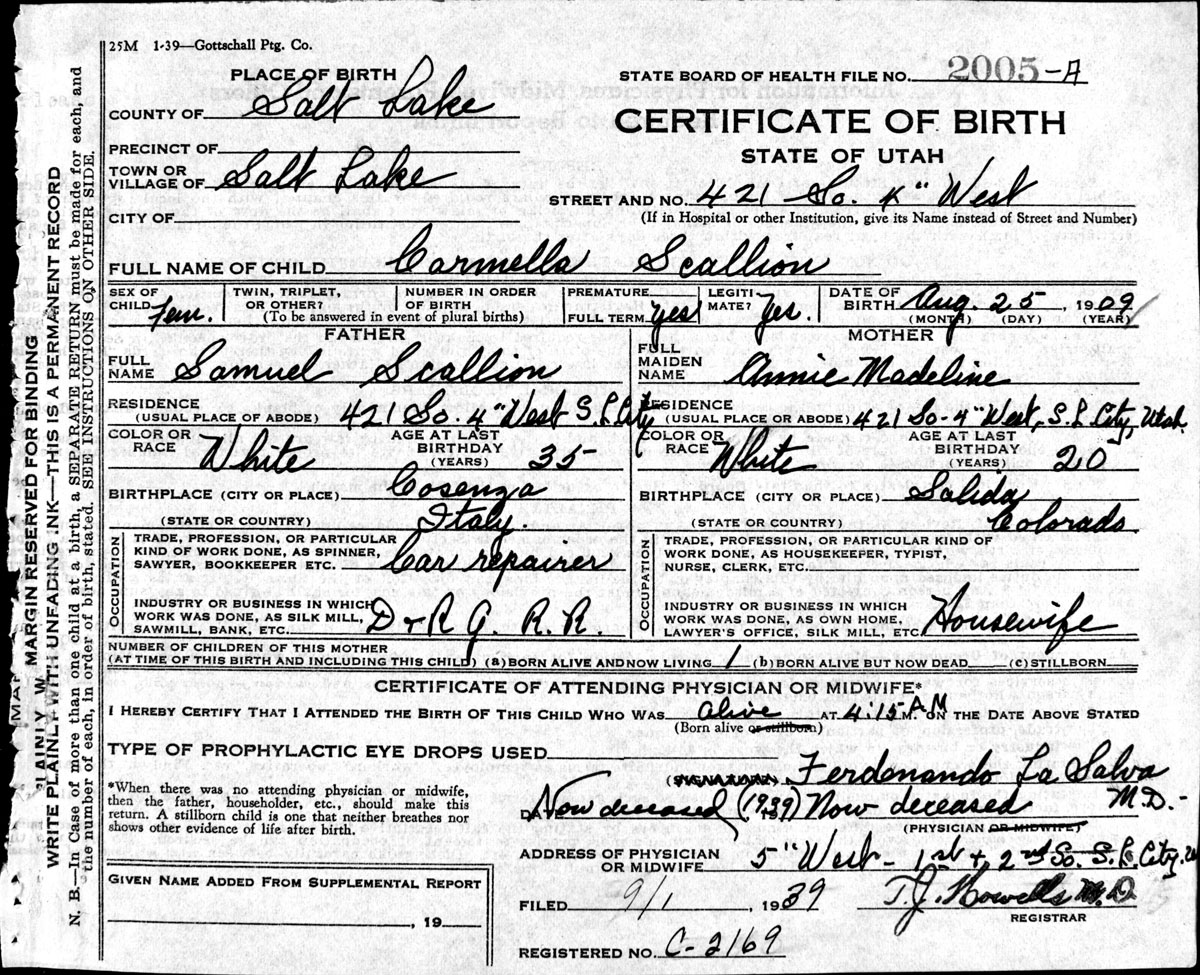 25M 1-39—Gottschall Ptg. Co.
PLACE OF BIRTH
COUNTY OF Salt Lake
PRECINCT OF
TOWN OR VILLAGE OF Salt Lake
CITY OF
STATE BOARD OF HEALTH FILE NO. 2005-A
CERTIFICATE OF BIRTH
STATE OF UTAH
STREET AND NO. 421 So. 4" West
(If in Hospital or other Institution, give its Name instead of Street and Number)
FULL NAME OF CHILD Carmella Scallion
SEX OF CHILD Fem.
TWIN, TRIPLET, OR OTHER?
NUMBER IN ORDER OF BIRTH
(To be answered in event of plural births)
PREMATURE
FULL TERM Yes
LEGITIMATE? Yes.
DATE OF BIRTH Aug. 25 1909
(MONTH) (DAY) (YEAR)
FATHER
FULL NAME Samuel Scallion
RESIDENCE
(USUAL PLACE OF ABODE) 421 So. 4" West S. L. City
COLOR OR RACE White
AGE AT LAST BIRTHDAY (YEARS) 35
BIRTHPLACE (CITY OR PLACE) Cosenza
(STATE OR COUNTRY) Italy.
OCCUPATION
TRADE, PROFESSION, OR PARTICULAR
KIND OF WORK DONE, AS SPINNER,
SAWYER, BOOKKEEPER ETC. Car repairer
INDUSTRY OR BUSINESS IN WHICH
WORK WAS DONE, AS SILK MILL,
SAWMILL, BANK, ETC. D + R G. R. R.
MOTHER
FULL MAIDEN NAME Annie Madeline
RESIDENCE
(USUAL PLACE OF ABODE) 421 So - 4" West, S. L. City, Utah
COLOR OR RACE White
AGE AT LAST BIRTHDAY (YEARS) 20
BIRTHPLACE (CITY OR PLACE) Salida
(STATE OR COUNTRY) Colorado
OCCUPATION
TRADE, PROFESSION, OR PARTICULAR KIND OF
WORK DONE, AS HOUSEKEEPER, TYPIST,
NURSE, CLERK, ETC.
INDUSTRY OR BUSINESS IN WHICH
WORK WAS DONE, AS OWN HOME,
LAWYER'S OFFICE, SILK MILL, ETC. Housewife
NUMBER OF CHILDREN OF THIS MOTHER
(AT TIME OF THIS BIRTH AND INCLUDING THIS CHILD) (a) BORN ALIVE AND NOW LIVING 1 (b) BORN ALIVE BUT NOW DEAD (c) STILLBORN
CERTIFICATE OF ATTENDING PHYSICIAN OR MIDWIFE*
I HEREBY CERTIFY THAT I ATTENDED THE BIRTH OF THIS CHILD WHO WAS alive AT 4:15 AM M. ON THE DATE ABOVE STATED
(Born alive or stillborn)
TYPE OF PROPHYLACTIC EYE DROPS USED
*When there was no attending physician or midwife,
then the father, householder, etc., should make this
return. A stillborn child is one that neither breathes nor
shows other evidence of life after birth.
(SIGNATURE) Ferdenando La Salva
Now deceased (1939) Now deceased M.D.-
(PHYSICIAN OR MIDWIFE)
ADDRESS OF PHYSICIAN OR MIDWIFE 5" West - 1st + 2nd So. S. L. City.
GIVEN NAME ADDED FROM SUPPLEMENTAL REPORT
, 19
FILED 9/1 , 1939 T. J. Howells M.D.
REGISTRAR
REGISTERED NO. C-2169
MARGIN RESERVED FOR BINDING
WRITE PLAINLY WITH UNFADING INK—THIS IS A PERMANENT RECORD
N. B.—In Case of more than one child at a birth, a SEPARATE RETURN must be made for each, and
the number of each, in order of birth, stated. SEE INSTRUCTIONS ON OTHER SIDE.